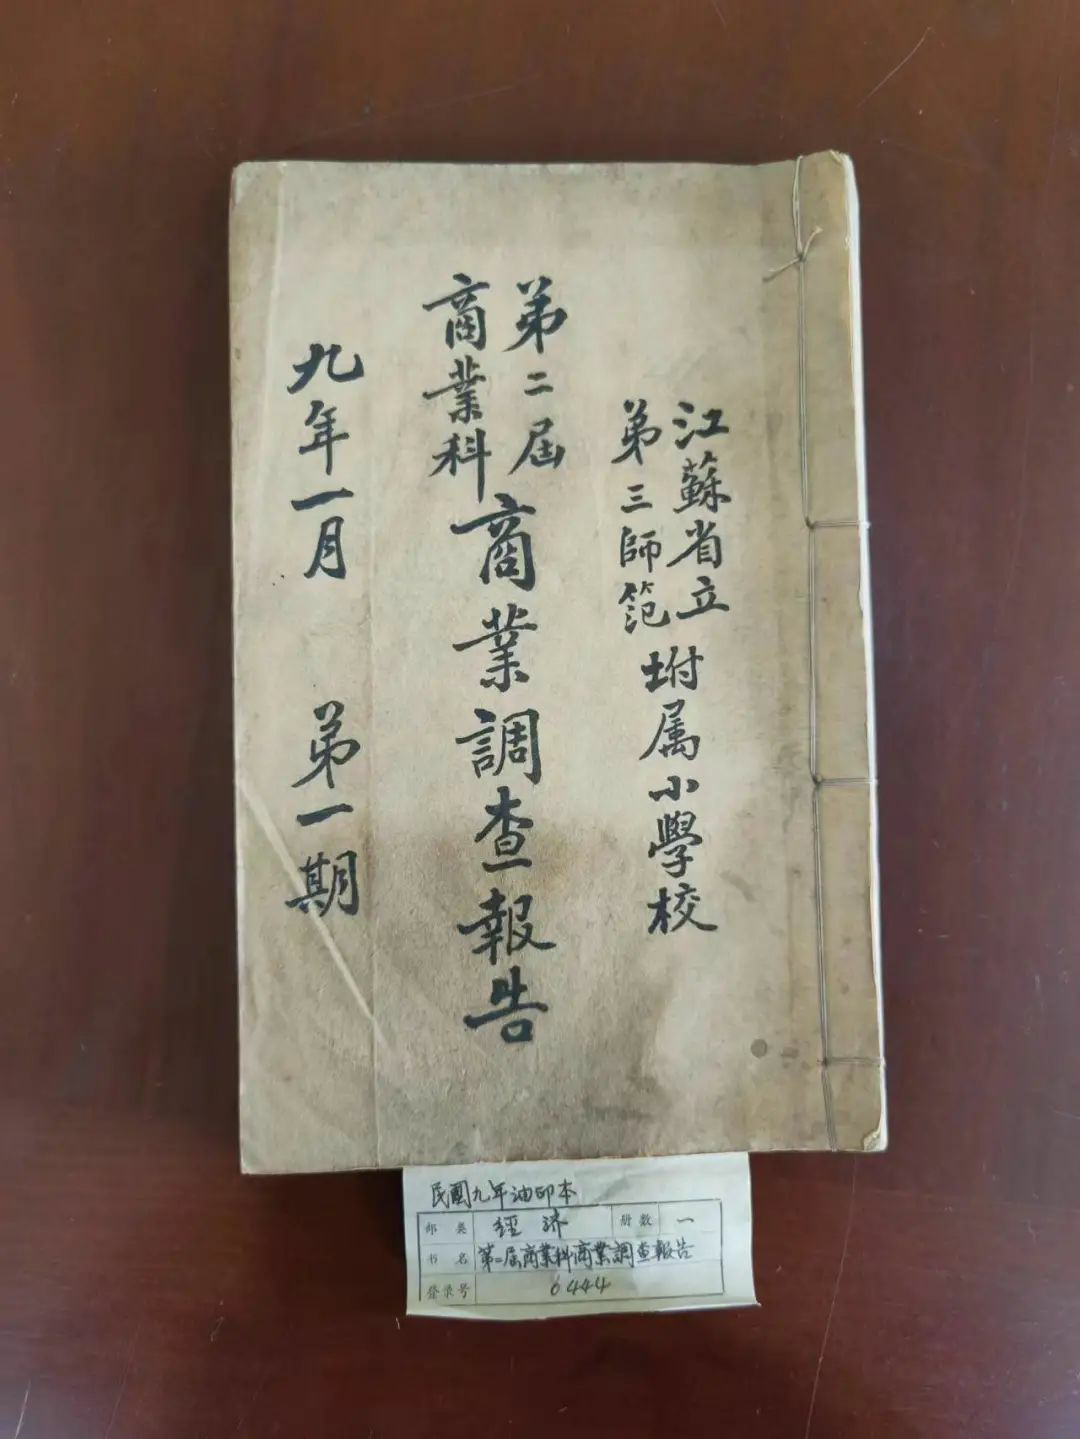 江蘇省立
第三師笵
坿属小學校
第二届
商業科
商業調查報告
九年一月 第一期
民國九年油印本
部 类 經济 册数 一
书 名 第二届商業科商業調查報告
登录号 0444